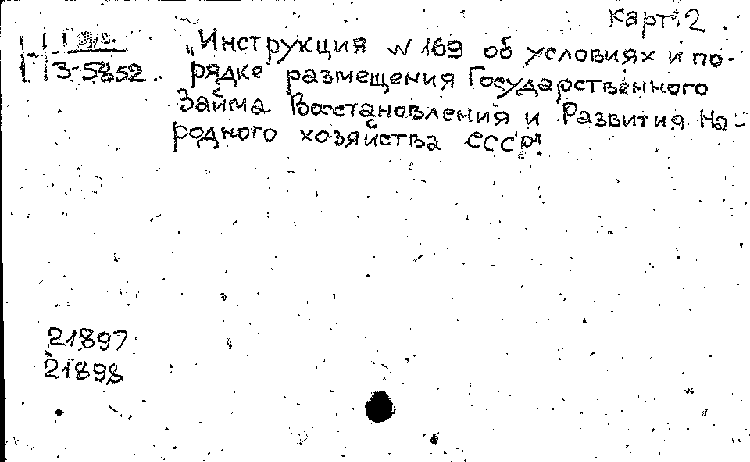 Карт. 2
„Инструкция № 169 об условиях и по-
3-5852 рядке размещения Государственного
Займа Восстановления и Развития На-
родного хозяйства СССР"
21897
21898